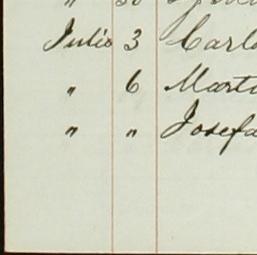 " 30
Julio 3 Carlo
" 6 Marti
" " Josefa